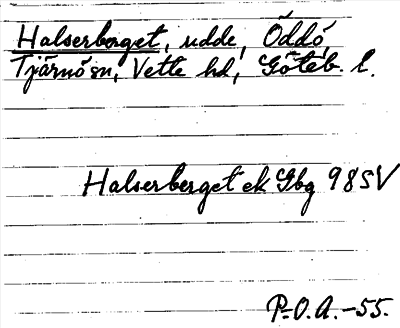 Halserberget, udde, Öddö,
Tjärnö sn, Vette hd, Göteb. l.
Halserberget ek Gbg 985V
P.O.A.-55.